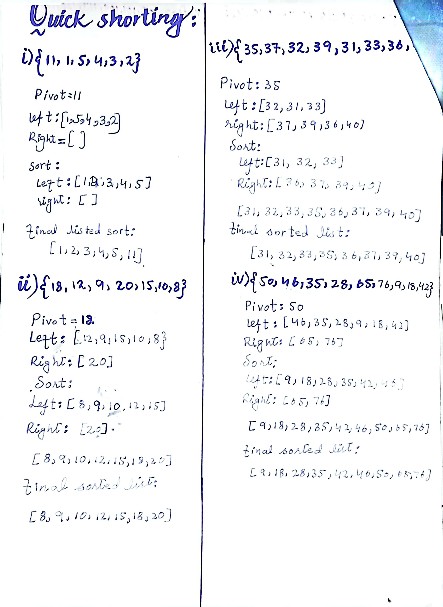 Quick shorting:
i) {11, 1, 5, 4, 3, 2}
Pivot=11
left: [1,5,4,3,2]
Right=[ ]
sort:
left: [1,2,3,4,5]
right: [ ]
Final listed sort:
[1,2,3,4,5,11]
ii) {18, 12, 9, 20, 15, 10, 8}
Pivot=18
Left: [12,9,15,10,8}
Right: [20]
Sort:
Left: [8,9,10,12,15]
Right: [20].
[8,9,10,12,15,18,20]
Final sorted list:
[8,9,10,12,15,18,20]
iii) {35, 37, 32, 39, 31, 33, 36,
Pivot: 35
left: [32,31,33]
right: [37,39,36,40]
Sort:
left: [31, 32, 33]
Right: [36, 37, 39, 40]
[31, 32, 33, 35, 36, 37, 39, 40]
Final sorted list:
[31, 32, 33, 35, 36, 37, 39, 40]
iv) {50, 46, 35, 28, 65, 76, 9, 18, 42}
Pivot: 50
left: [46,35,28,9,18,42]
Right: [65,76]
Sort:
left: [9,18,28,35,42,46]
Right: [65,76]
[9,18,28,35,42,46,50,65,76]
Final sorted list:
[9,18,28,35,42,46,50,65,76]